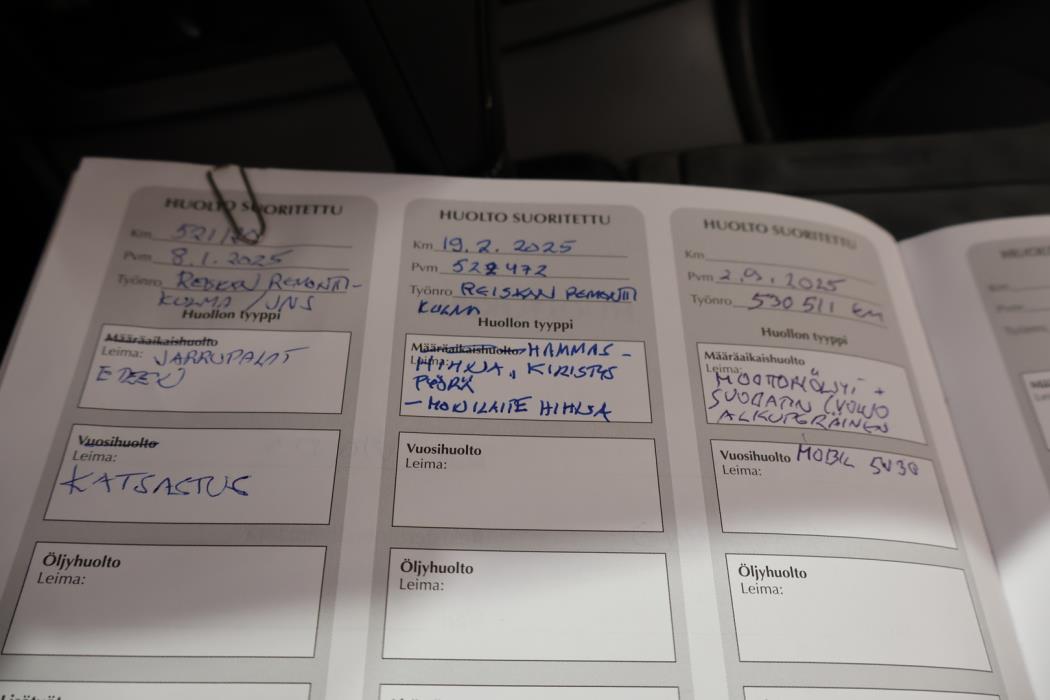 HUOLTO SUORITETTU
Km
Pvm 8.1.2025
Työnro REISKAN REMONTTI-
KULMA / JNS
Huollon tyyppi
Määräaikaishuolto
Leima: JARRUPALAT
ETEEN
Vuosihuolto
Leima:
KATSASTUS
Öljyhuolto
Leima:
Lisätyöt
HUOLTO SUORITETTU
Km 19.2.2025
Pvm 522472
Työnro REISKAN REMONTTI
KULMA
Huollon tyyppi
Määräaikaishuolto HAMMAS-
Leima: HIHNA, KIRISTYS
PYÖRÄ
- MONILAITE HIHNA
Vuosihuolto
Leima:
Öljyhuolto
Leima:
HUOLTO SUORITETTU
Km
Pvm 2.9.2025
Työnro 530511 KM
Huollon tyyppi
Määräaikaishuolto
Leima:
MOOTTORIÖLJYT +
SUODATIN (VOLVO
ALKUPERÄINEN
Vuosihuolto MOBIL 5W30
Leima:
Öljyhuolto
Leima: